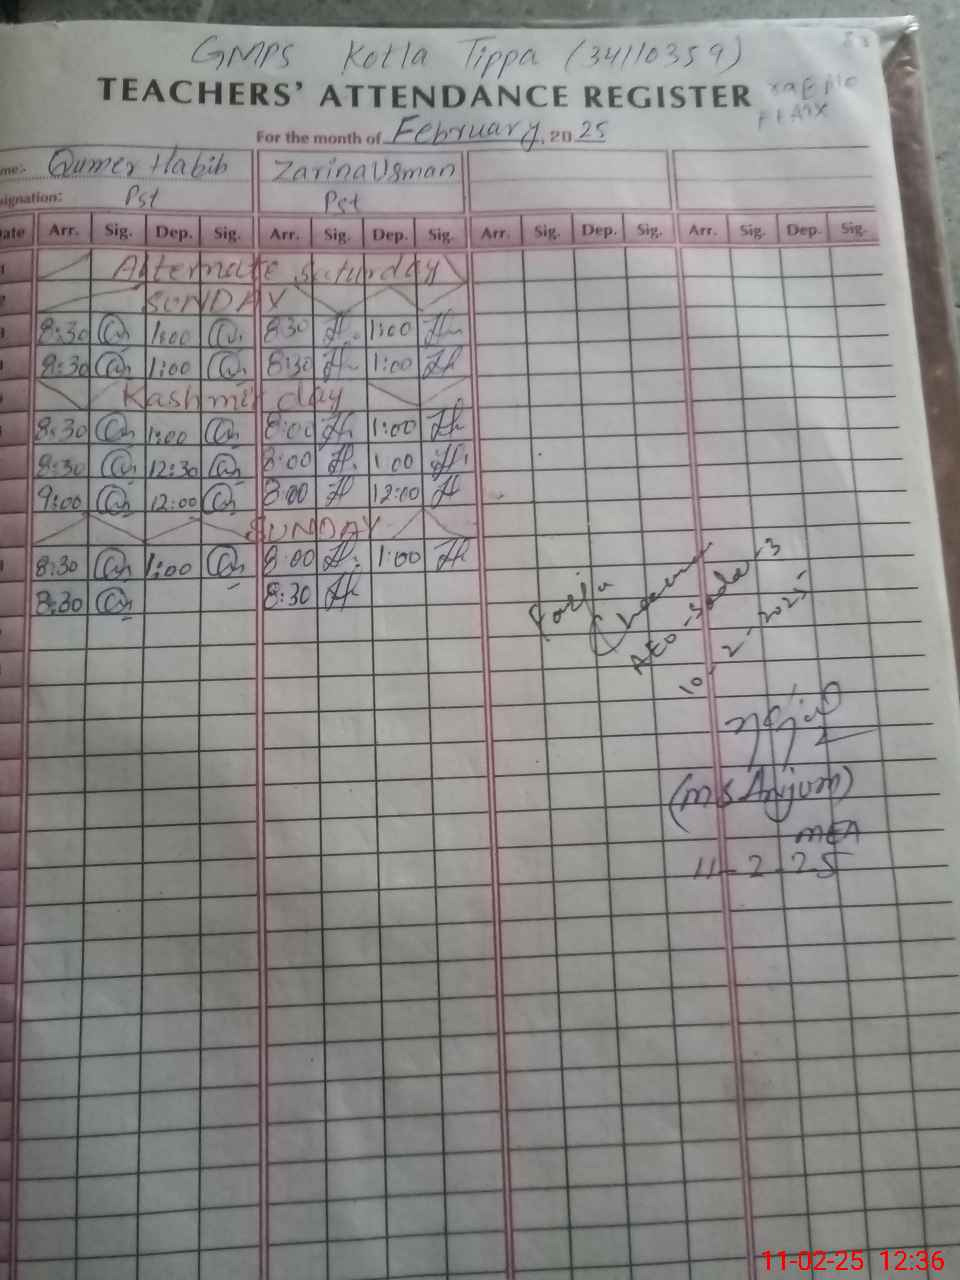 GMPS Kotla Tippa (34110359)
TEACHERS' ATTENDANCE REGISTER
For the month of February, 2025
me:- Qumer Habib Zarina Usman
signation: Pst Pst
ate Arr. Sig. Dep. Sig. Arr. Sig. Dep. Sig. Arr. Sig. Dep. Sig. Arr. Sig. Dep. Sig.
Alternate Saturday
SUNDAY
8:30 1:00 8:30 1:00
8:30 1:00 8:30 1:00
Kashmir day
8:30 1:00 8:00 1:00
8:30 12:30 8:00 1:00
9:00 12:00 8:00 12:00
SUNDAY
8:30 1:00 8:00 1:00
8:30 8:30
AEO-Sadar 3
10-2-2025
(MS Anjum)
MEA
11-2-25
11-02-25 12:36